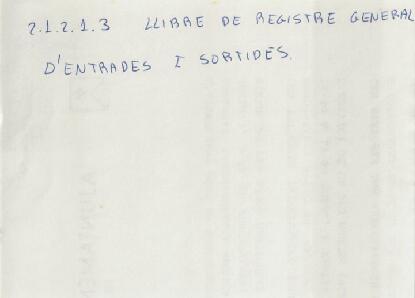 2.1.2.1.3 LLIBRE DE REGISTRE GENERAL
D'ENTRADES I SORTIDES.